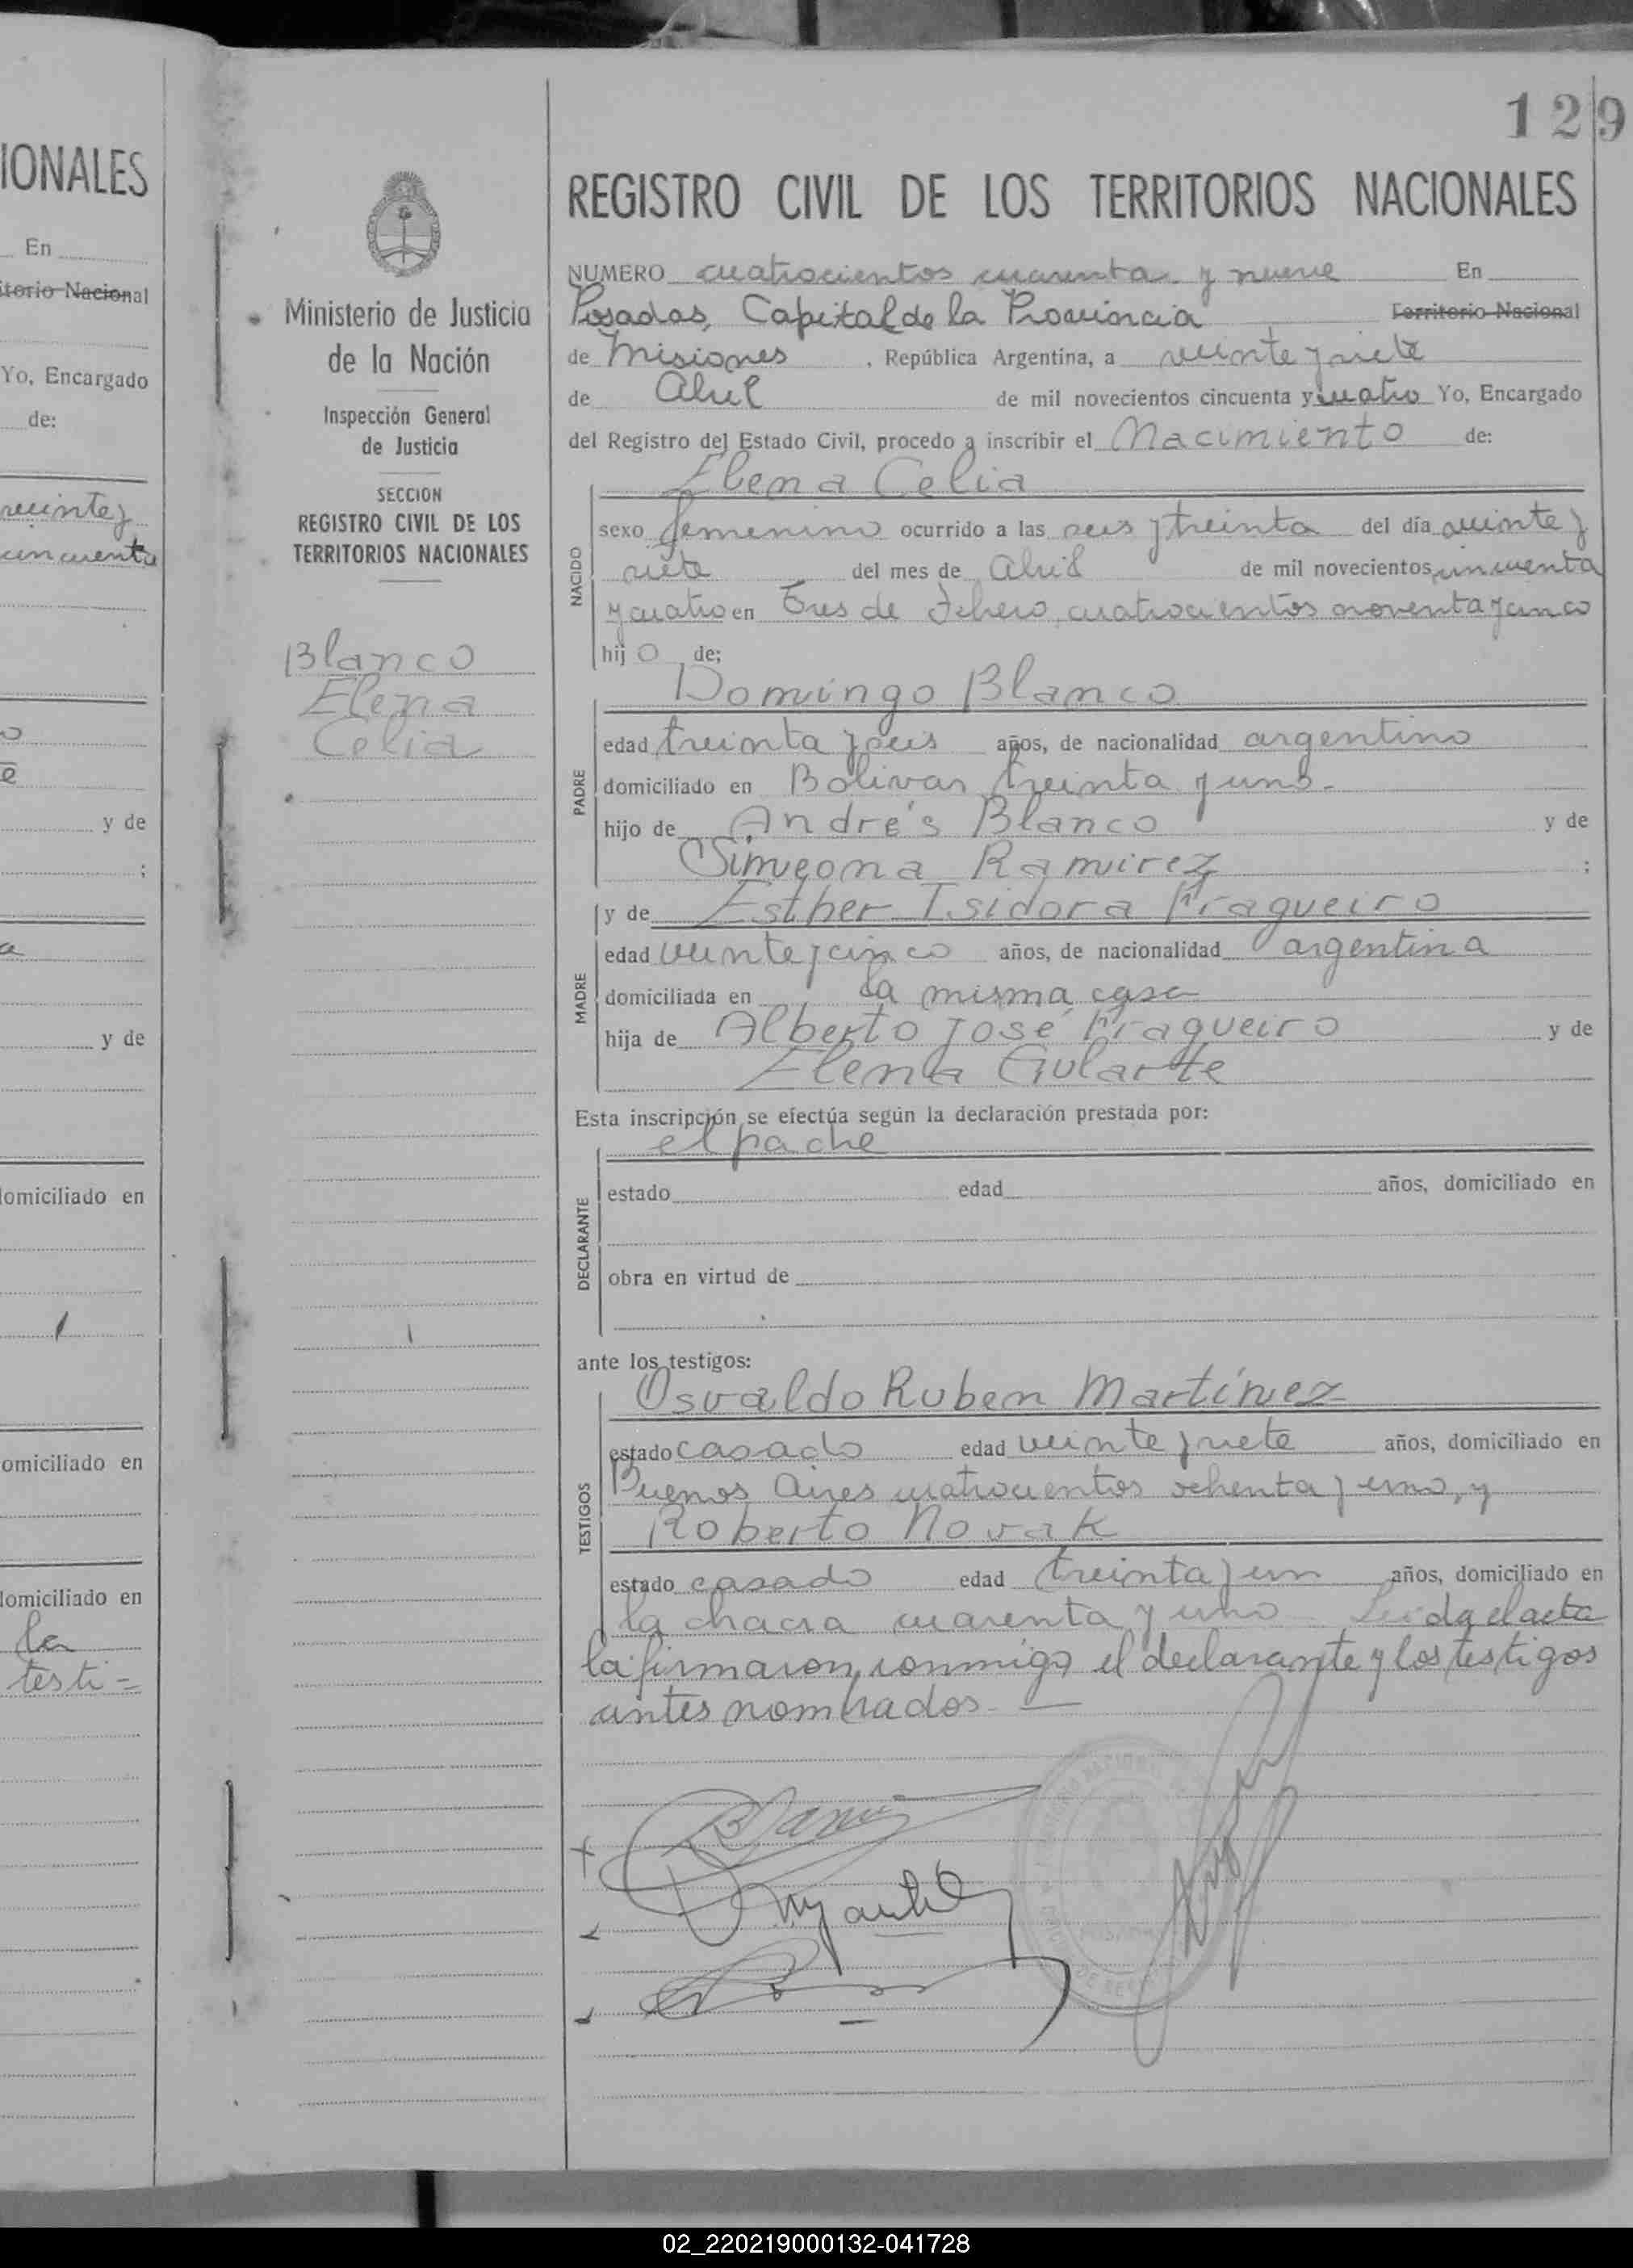 129
IONALES
En
itorio Nacional
Yo, Encargado
de:
cincuenta
y de
;
a
y de
domiciliado en
omiciliado en
domiciliado en
la
testi-
Ministerio de Justicia
de la Nación
Inspección General
de Justicia
SECCION
REGISTRO CIVIL DE LOS
TERRITORIOS NACIONALES
Blanco
Elena
Celia
REGISTRO CIVIL DE LOS TERRITORIOS NACIONALES
NUMERO cuatrocientos cuarenta y nueve En
Posadas, Capital de la Provincia Territorio Nacional
de Misiones , República Argentina, a veinte y siete
de Abril de mil novecientos cincuenta y cuatro Yo, Encargado
del Registro del Estado Civil, procedo a inscribir el Nacimiento de:
Elena Celia
NACIDO
sexo femenino ocurrido a las seis y treinta del día veinte y
siete del mes de Abril de mil novecientos cincuenta
y cuatro en Tres de Febrero, cuatrocientos noventa y cinco
hijo de:
Domingo Blanco
PADRE
edad treinta y seis años, de nacionalidad argentino
domiciliado en Bolivar treinta y uno.
hijo de Andrés Blanco y de
Simeona Ramirez ;
y de Esther Isidora Fragueiro
MADRE
edad veinte y cinco años, de nacionalidad argentina
domiciliada en la misma casa
hija de Alberto José Fragueiro y de
Elena Gularte
Esta inscripción se efectúa según la declaración prestada por:
el padre
DECLARANTE
estado edad años, domiciliado en
obra en virtud de
ante los testigos:
Osvaldo Ruben Martínez
TESTIGOS
estado casado edad veinte y siete años, domiciliado en
Buenos Aires cuatrocientos ochenta y uno, y
Roberto Novak
estado casado edad treinta y un años, domiciliado en
la chacra cuarenta y uno Leida el acta
la firmaron conmigo el declarante y los testigos
antes nombrados. —
02_220219000132-041728